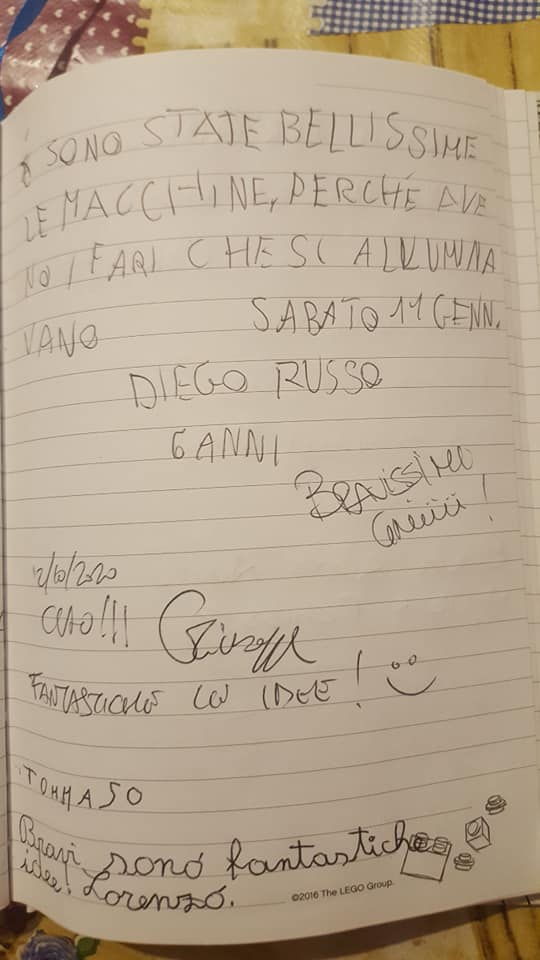 SONO STATE BELLISSIME
LE MACCHINE, PERCHÉ AVE
NO I FARI CHE SI ALLUMINA
VANO SABATO 11 GENN.
DIEGO RUSSO
6 ANNI
BRAVISSIMO
CIAO!!!
FANTASTICHE IDEE!
TOMMASO
Bravi sono fantastiche
idee! Lorenzo.
©2016 The LEGO Group.